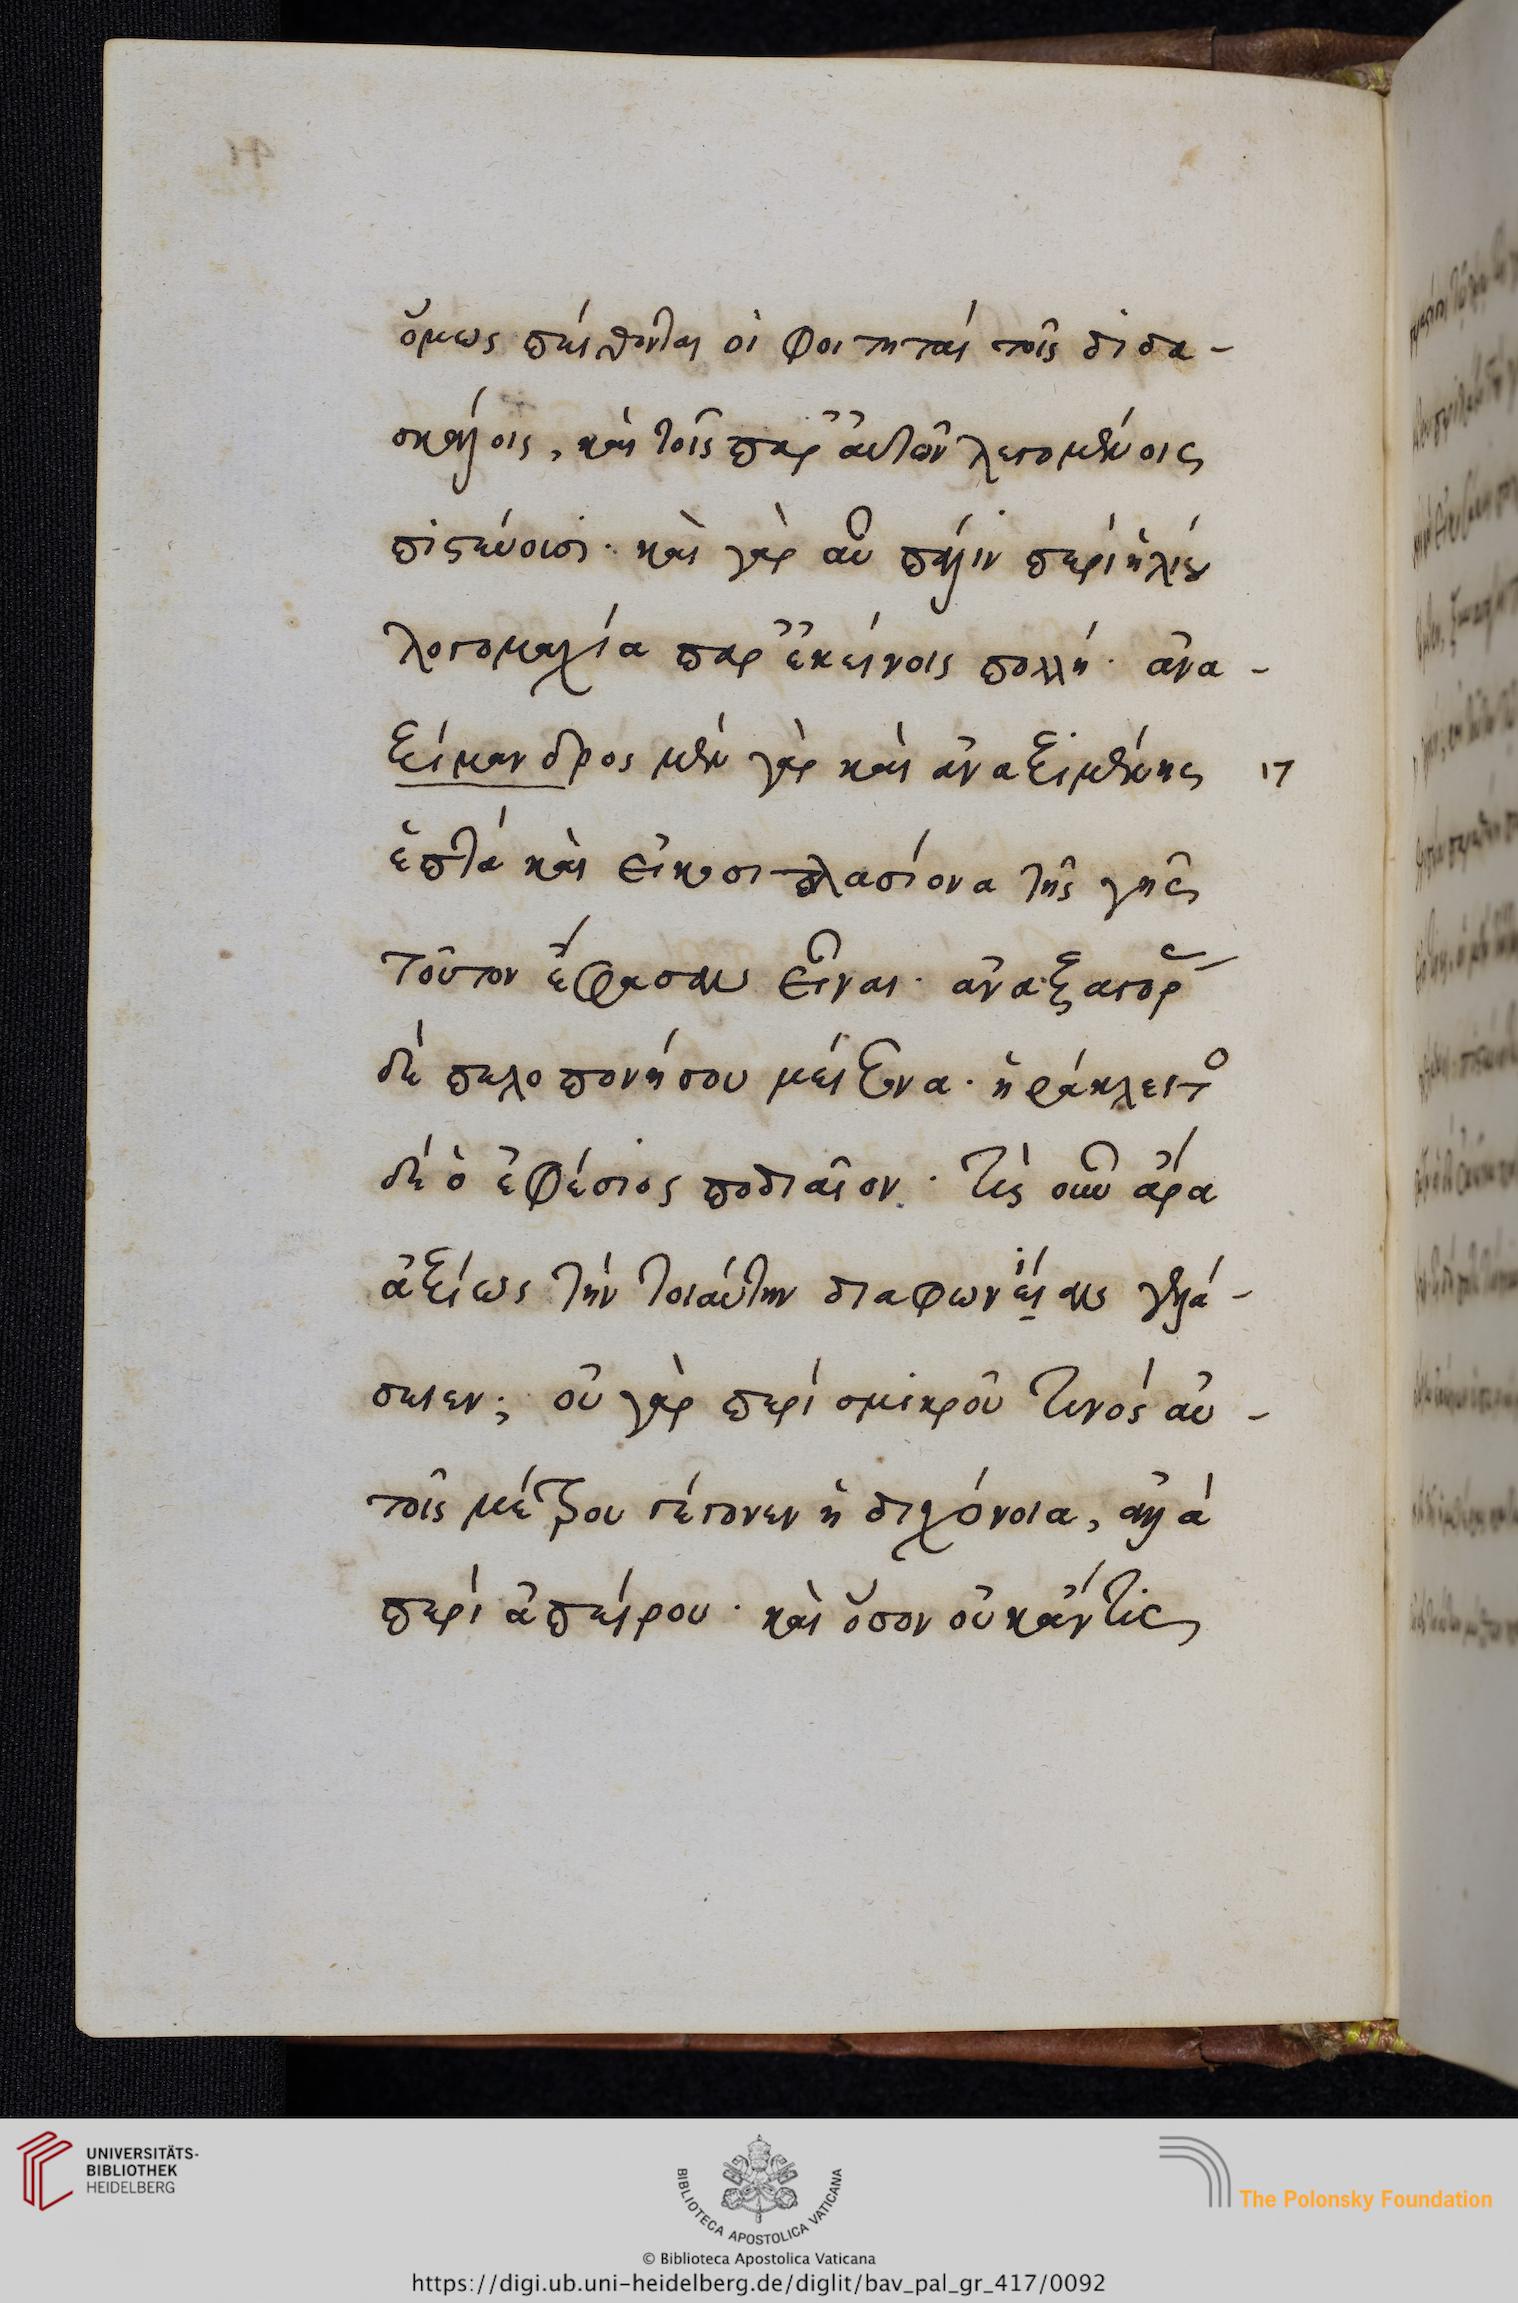 ὅμως πείθονται οἱ φοιτηταί τοῖς διδα-
σκάλοις, καὶ τοῖς παρ' αὐτῶν λεγομένοις
πιστεύουσι· καὶ γὰρ αὖ πάλιν περὶ ἡλίου
λογομαχία παρ' ἐκείνοις πολλή· ἀνα-
ξίμανδρος μὲν γὰρ καὶ ἀναξιμένης 17
ἑπτὰ καὶ εἰκοσιπλασίονα τῆς γῆς
τοῦτον ἔφασαν εἶναι· ἀναξαγόρ
δὲ πελοπονήσου μείζονα· ἡράκλειτο
δὲ ὁ ἐφέσιος ποδιαῖον· τίς οὖν ἄρα
ἀξίως τὴν τοιαύτην διαφωνείαν γελά-
σειεν; οὐ γὰρ περί σμικροῦ τινός αὐ-
τοῖς μέτρου γέγονεν ἡ διχόνοια, ἀλλά
περί ἀπείρου· καὶ ὅσον οὐκ ἄν τις
UNIVERSITÄTS-
BIBLIOTHEK
HEIDELBERG
BIBLIOTECA APOSTOLICA VATICANA
The Polonsky Foundation
© Biblioteca Apostolica Vaticana
https://digi.ub.uni-heidelberg.de/diglit/bav_pal_gr_417/0092